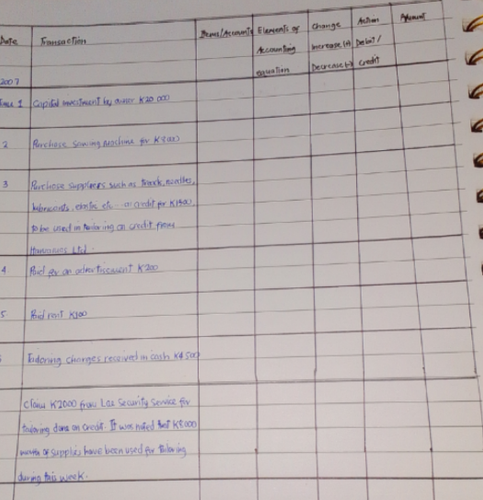 Date Transaction Items/Accounts Elements of Change Action Amount
Accounting Increase(+) Debit/
equation Decrease(-) Credit
2007
1 Capital investment by owner K20 000
2 Purchase Sewing Machine for
3 Purchase suppliers such as needles,
etc on credit for K1500
to be used in tailoring on credit from
Ltd.
4 Paid for an advertisement K200
5 Paid rent
Tailoring charges received in cash
Claim K2000 from Lae Security Service for
tailoring done on credit. It was noted that
worth of supplies have been used for tailoring
during this week.